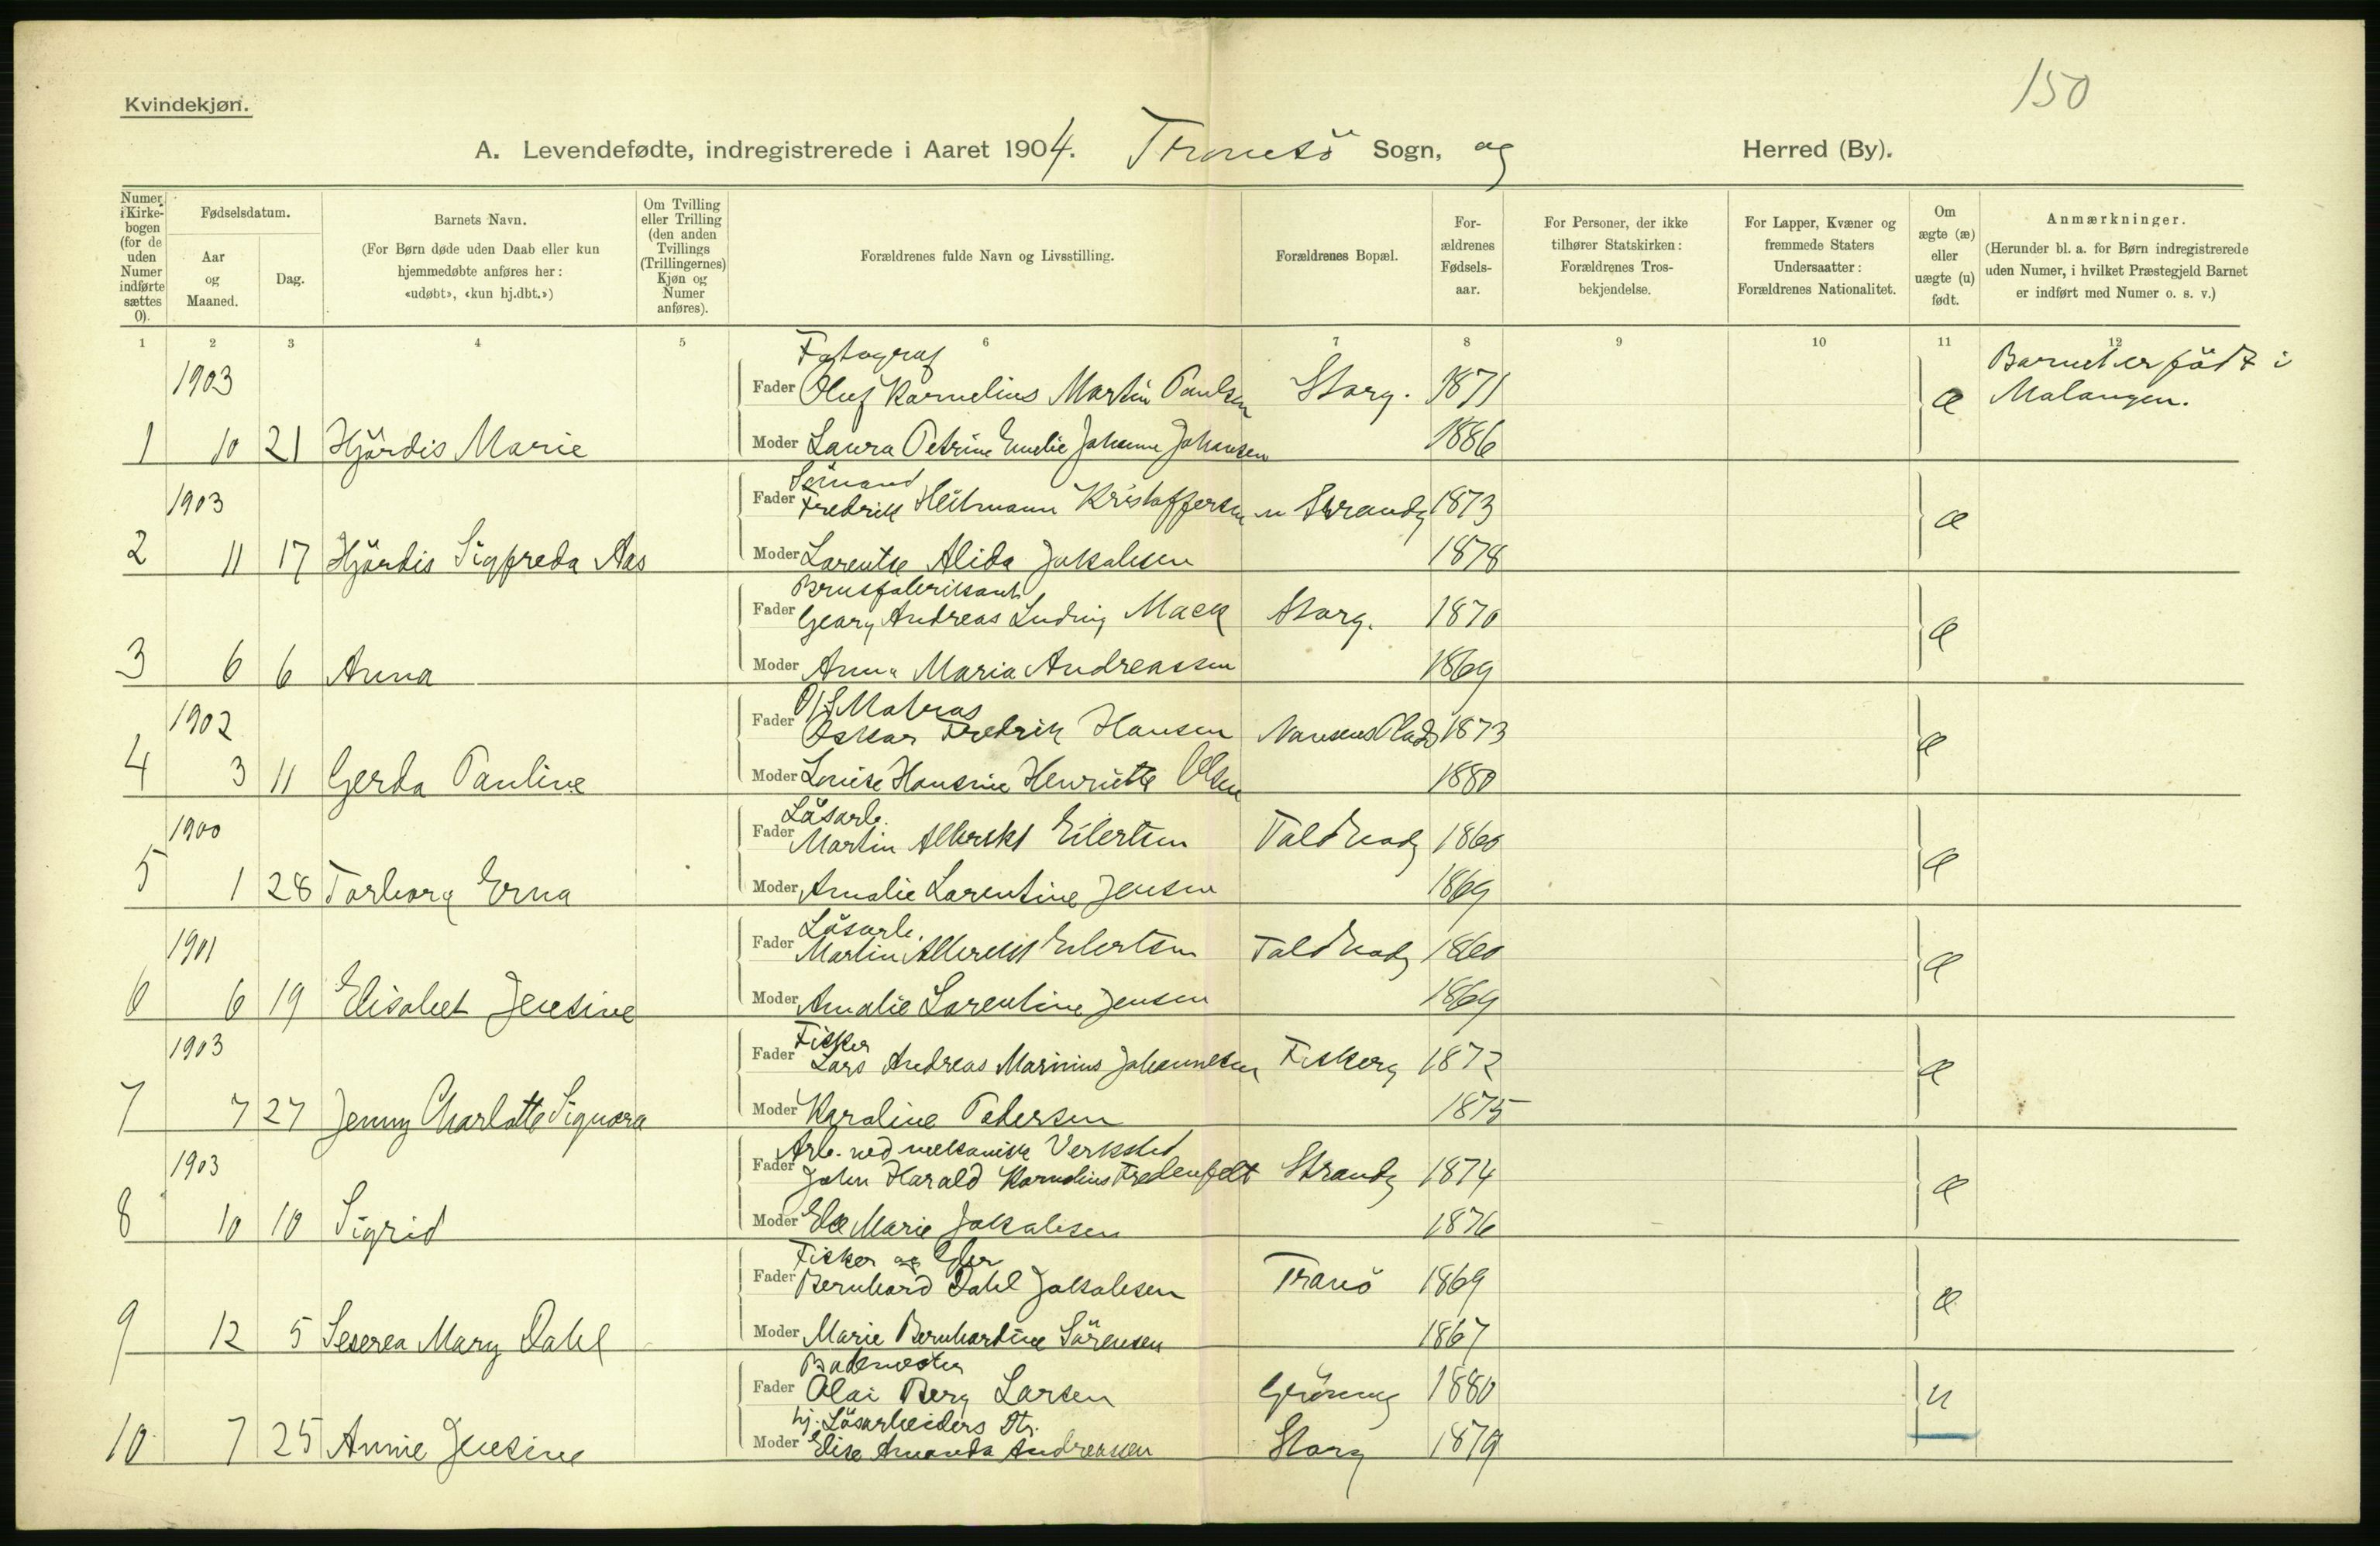 150
Kvindekjøn.
A. Levendefødte, indregistrerede i Aaret 1904. Tromsö Sogn, og Herred (By).
Numer i Kirkebogen (for de uden Numer indførte sættes 0).
Fødselsdatum.
Aar og Maaned.
Dag.
Barnets Navn.
(For Børn døde uden Daab eller kun hjemmedøbte anføres her: «udøbt», «kun hj.dbt.»)
Om Tvilling eller Trilling (den anden Tvillings (Trillingernes) Kjøn og Numer anføres).
Forældrenes fulde Navn og Livsstilling.
Forældrenes Bopæl.
For-ældrenes Fødsels-aar.
For Personer, der ikke tilhører Statskirken: Forældrenes Tros-bekjendelse.
For Lapper, Kvæner og fremmede Staters Undersaatter: Forældrenes Nationalitet.
Om ægte (æ) eller uægte (u) født.
Anmærkninger.
(Herunder bl. a. for Børn indregistrerede uden Numer, i hvilket Præstegjeld Barnet er indført med Numer o. s. v.)
1 2 3 4 5 6 7 8 9 10 11 12
Fotograf
1903 Fader Oluf Kornelius Martin Paulsen Storg. 1871 æ Barnet er födt i Malangen.
1 10 21 Hjördis Marie Moder Laura Petrine Emelie Johanne Johansen 1886
Sömand
1903 Fader Fredrik Heitmann Kristoffersen n Strandg 1873 æ
2 11 17 Hjördis Sigfreda Aas Moder Lorentse Alida Jakobsen 1878
Brusfabrikant
Fader Georg Andreas Ludvig Mack Storg. 1870 æ
3 6 6 Anna Moder Anna Maria Andreassen 1869
Matros
1902 Fader Oskar Fredrik Hansen Nansens Plads 1873 æ
4 3 11 Gerda Pauline Moder Louise Hansine Henriette Olsen 1880
Lösarb.
1900 Fader Martin Albrekt Eilertsen Toldbodg 1860 æ
5 1 28 Torborg Erna Moder Amalie Lorentine Jensen 1869
Lösarb.
1901 Fader Martin Albrekt Eilertsen Toldbodg 1860 æ
6 6 19 Elisabet Jensine Moder Amalie Lorentine Jensen 1869
Fisker
1903 Fader Lars Andreas Marinius Johannesen Fiskerg 1872 æ
7 7 27 Jenny Charlotte Signora Moder Karoline Pedersen 1875
Arb. ved mekanisk Verksted
1903 Fader John Harald Kornelius Fredenfelt Strandg 1874 æ
8 10 10 Sigrid Moder Marie Jakobsen 1876
Fisker og
Fader Bernhard Dahl Jakobsen Tranö 1869 æ
9 12 5 Seserea Mary Dahl Moder Marie Bernhardine Sörensen 1867
Bademester
Fader Olai Berg Larsen Grönneg 1880 u
hj. Lösarbeiders Dtr.
10 7 25 Annie Jensine Moder Elise Amanda Andreassen Storg 1879